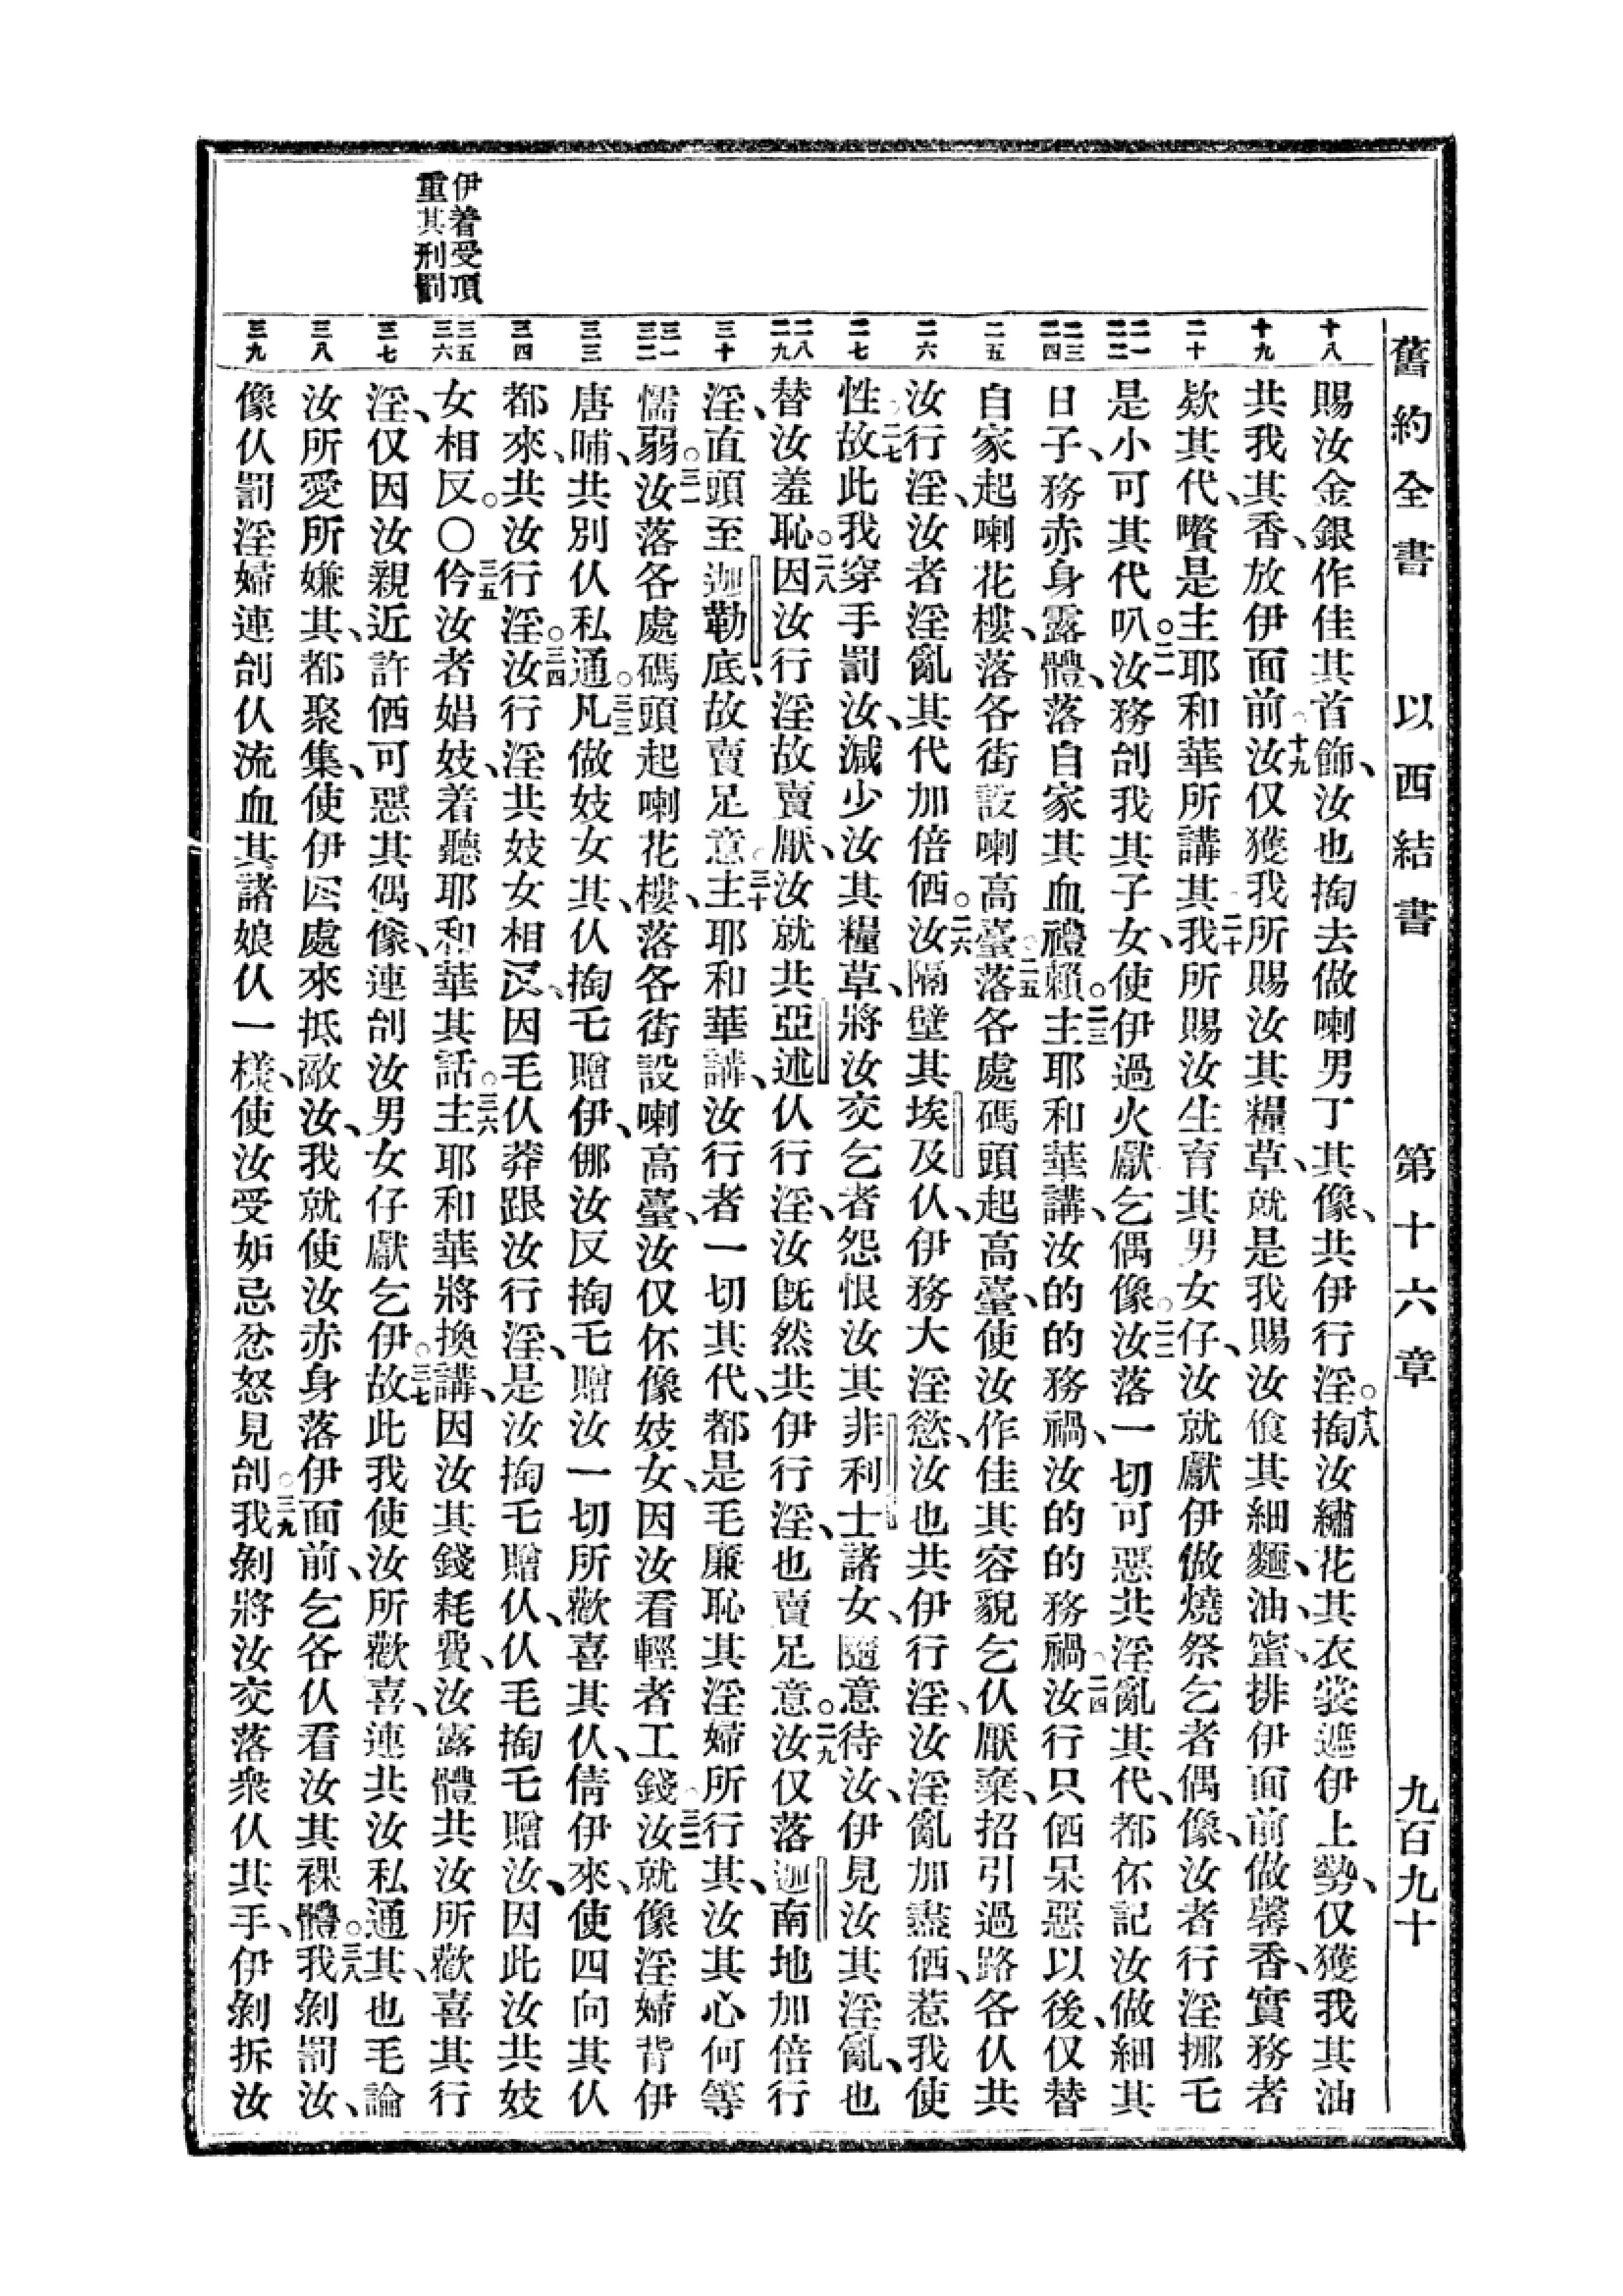 舊約全書 以西結書 第十六章 九百九十
伊着受頂
重其刑罰
十八
十九
二十
二一
二二
二三
二四
二五
二六
二七
二八
二九
三十
三一
三二
三三
三四
三五
三六
三七
三八
三九
賜汝金銀作佳其首飾、汝也掏去做喇男丁其像、共伊行淫。十八掏汝繡花其衣裳遮伊上勢、仅獲我其油
共我其香、放伊面前。十九汝仅獲我所賜汝其糧草、就是我賜汝飡其細麵、油、蜜、排伊面前做馨香、實務者
欵其代、嚽是主耶和華所講其。二十我所賜汝生育其男女仔、汝就獻伊做燒祭乞者偶像、汝者行淫挪乇
是小可其代叭。二一汝務刣我其子女、使伊過火獻乞偶像。二二汝落一切可惡共淫亂其代、都伓記汝做細其
日子、務赤身露體、落自家其血禮賴。二三主耶和華講、汝的的務禍、汝的的務禍。二四汝行只𠲥呆惡以後、仅替
自家起喇花樓、落各街設喇高臺。二五落各處碼頭起高臺、使汝作佳其容貌乞仈厭棄、招引過路各仈共
汝行淫、汝者淫亂其代加倍𠲥。二六汝隔壁其埃及仈、伊務大淫慾、汝也共伊行淫、汝淫亂加盡𠲥、惹我使
性。二七故此我穿手罰汝、減少汝其糧草、將汝交乞者怨恨汝其非利士諸女、隨意待汝、伊見汝其淫亂、也
替汝羞恥。二八因汝行淫故賣厭、汝就共亞述仈行淫、汝既然共伊行淫、也賣足意。二九汝仅落迦南地加倍行
淫、直頭至迦勒底、故賣足意。三十主耶和華講、汝行者一切其代、都是毛廉恥其淫婦所行其、汝其心何等
懦弱。三一汝落各處碼頭起喇花樓、落各街設喇高臺、汝仅伓像妓女、因汝看輕者工錢。三二汝就像淫婦背伊
唐晡、共別仈私通。三三凡做妓女其、仈掏乇贈伊、倻汝反掏乇贈汝一切所歡喜其仈、倩伊來、使四向其仈
都來、共汝行淫。三四汝行淫共妓女相反、因毛仈莽跟汝行淫、是汝掏乇贈仈、仈毛掏乇贈汝、因此汝共妓
女相反。〇三五仱汝者娼妓、着聽耶和華其話。三六主耶和華將換講、因汝其錢耗費、汝露體共汝所歡喜其行
淫、仅因汝親近許𠲥可惡其偶像、連刣汝男女仔獻乞伊。三七故此我使汝所歡喜、連共汝私通其、也毛論
汝所愛所嫌其、都聚集、使伊四處來抵敵汝、我就使汝赤身落伊面前、乞各仈看汝其裸體。三八我剝罰汝、
像仈罰淫婦連刣仈流血其諸娘仈一樣、使汝受妒忌忿怒見刣。三九我剝將汝交落衆仈其手、伊剝拆汝